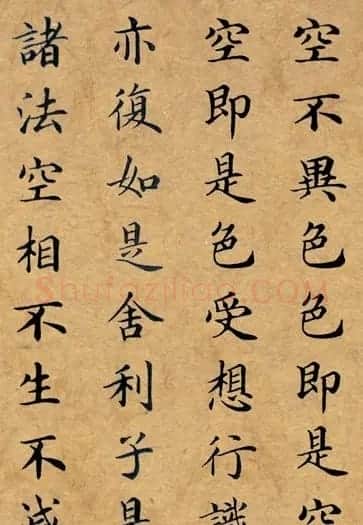 空不異色色即是空
空即是色受想行識
亦復如是舍利子是
諸法空相不生不